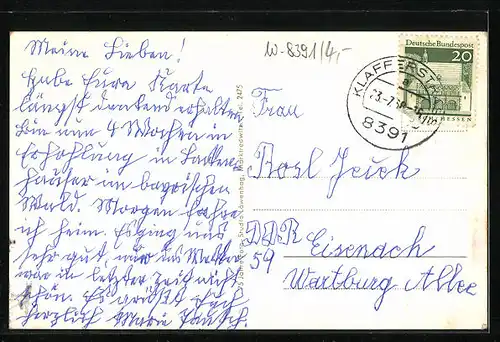 W-8391/4,-
Meine Lieben!
Habe Eure Karte
längst dankend erhalten
Bin nun 4 Wochen in
Erhohlung in
häuser im bayrischen
Wald. Morgen fahre
ich heim. Es ging uns
sehr gut nur das Wetter
war in letzter Zeit nicht
schön. Es grüsst Euch
herzlich Marie
Deutsche Bundespost
20
HESSEN
KLAFFERSTR
8391
Frau
Rosl
DDR
59
Eisenach
Wartburg Allee